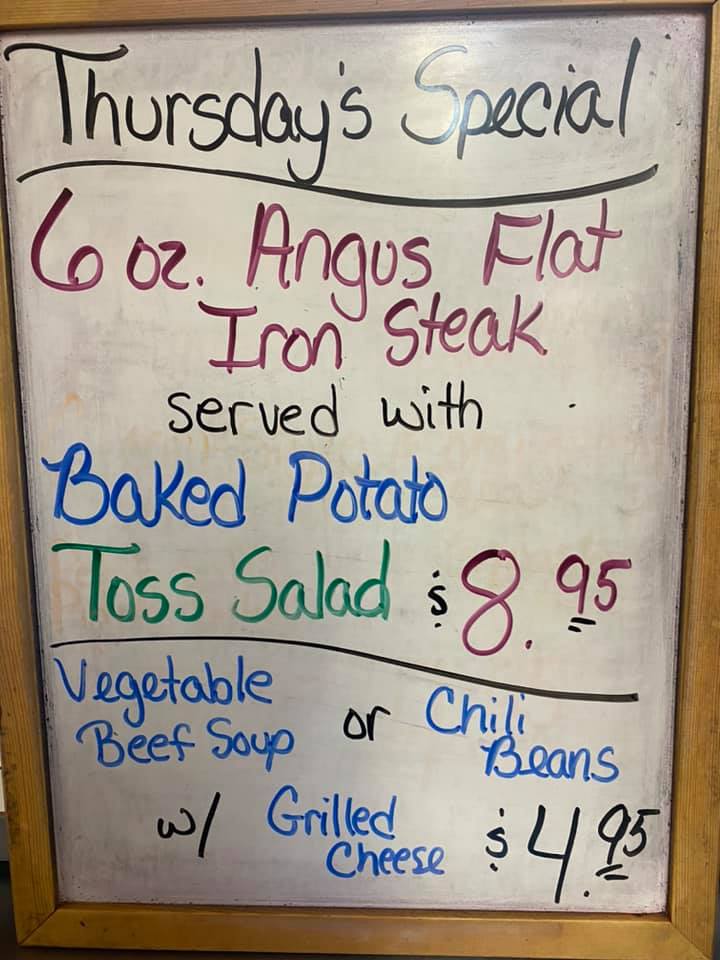 Thursday's Special
6 oz. Angus Flat
Iron Steak
served with
Baked Potato
Toss Salad $8.95
Vegetable
Beef Soup or Chili
Beans
w/ Grilled
Cheese $4.95